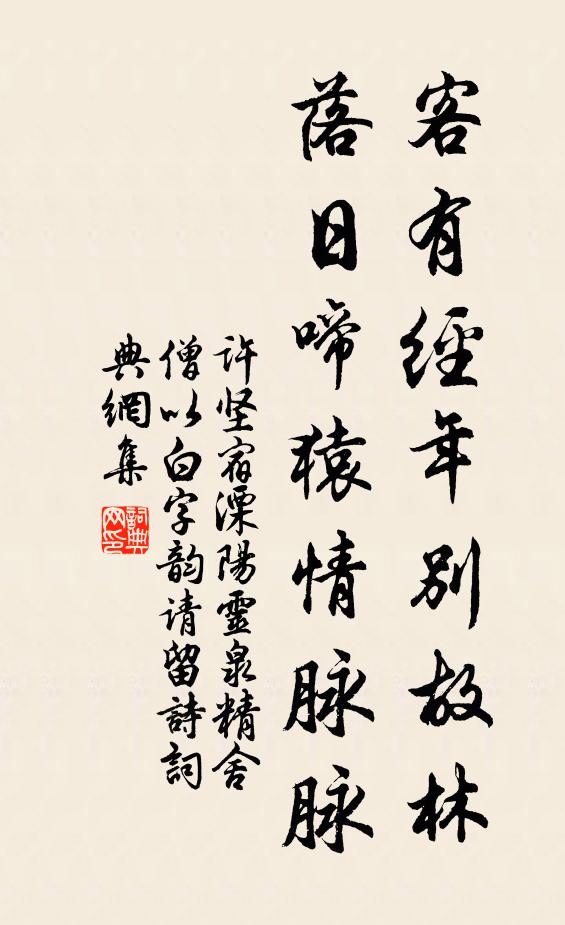 客有經年別故林
落日啼猿情脉脉
许坚宿溧陽靈泉精舍
僧以白字韵请留詩詞
典網集
詞典网印